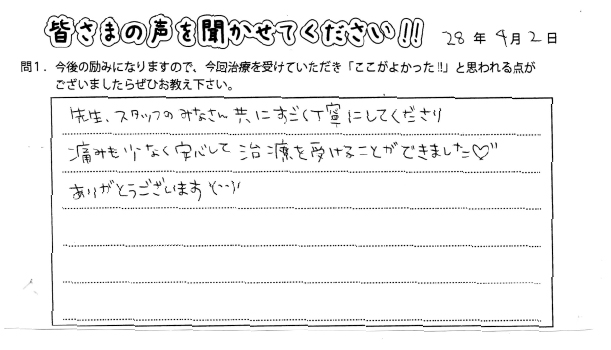 皆さまの声を聞かせてください!! 28年4月2日
問1. 今後の励みになりますので、今回治療を受けていただき「ここがよかった!!」と思われる点が
ございましたらぜひお教え下さい。
先生、スタッフのみなさん共にすごく丁寧にしてくださり
痛みも少なく安心して治療を受けることができました♡"
ありがとうございます